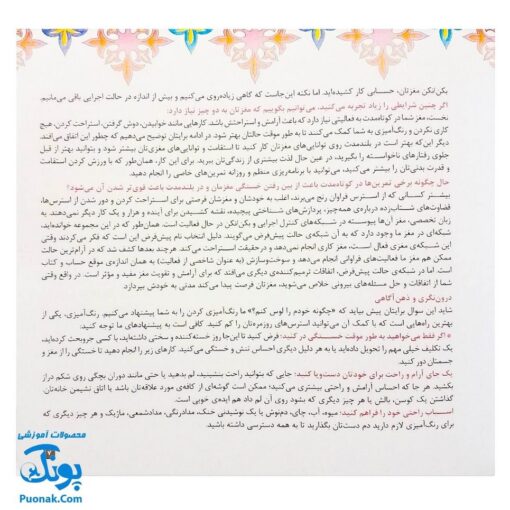 بکن‌نکن مغزتان، حسابی کار کشیده‌اید. اما نکته این‌جاست که گاهی زیاده‌روی می‌کنیم و بیش از اندازه در حالت اجرایی باقی می‌مانیم.
اگر چنین شرایطی را زیاد تجربه می‌کنید، می‌توانیم بگوییم که مغزتان به دو چیز نیاز دارد:
نخست، مغز شما در کوتاه‌مدت به فعالیتی نیاز دارد که باعث آرامش و استراحتش باشد. کارهایی مانند خوابیدن، دوش گرفتن، استراحت کردن، هیچ
کاری نکردن و رنگ‌آمیزی به شما کمک می‌کنند تا به طور موقت حالتان بهتر شود. در ادامه برایتان توضیح می‌دهیم که چطور این اتفاق می‌افتد.
دیگر این‌که بهتر است در بلندمدت روی توانایی‌های مغزتان کار کنید تا استقامت و توانایی‌های مغزی‌تان بیشتر شود و بتوانید بهتر از قبل
جلوی رفتارهای ناخواسته را بگیرید، در عین حال لذت بیشتری از زندگی‌تان ببرید. برای این کار، همان‌طور که با ورزش کردن استقامت
و قدرت بدنی‌تان را بیشتر می‌کنید، می‌توانید با برنامه‌ریزی منظم و روزانه تمرین‌های خاصی را انجام دهید.
حال چگونه برخی تمرین‌ها در کوتاه‌مدت باعث از بین رفتن خستگی مغزمان و در بلندمدت باعث قوی‌تر شدن آن می‌شود؟
بیشتر کسانی که از استرس فراوان رنج می‌برند، اغلب به خودشان و مغزشان فرصتی برای استراحت کردن و دور شدن از استرس‌ها،
قضاوت‌های شتاب‌زده درباره‌ی همه‌چیز، پردازش‌های شناختی پیچیده، نقشه کشیدن برای آینده و هزار و یک کار دیگر نمی‌دهند. به
زبان تخصصی، مغز آن‌ها پیوسته در شبکه‌های کنترل اجرایی و بکن‌نکن در حال فعالیت است. همان‌طور که در این مجموعه خوانده‌اید،
شبکه‌ای در مغز ما وجود دارد که به آن شبکه‌ی حالت پیش‌فرض می‌گویند. دلیل انتخاب نام پیش‌فرض این است که فکر می‌کردند وقتی
این شبکه‌ی مغزی فعال است، مغز کاری انجام نمی‌دهد و درحقیقت استراحت می‌کند. هر چند بعدها کشف شد که در آرام‌ترین حالت
ممکن هم مغز ما فعالیت‌های فراوانی انجام می‌دهد و سوخت‌وسازش (به عنوان شاخصی از فعالیت) به همان اندازه‌ی موقع حساب و کتاب
است. اما در شبکه‌ی حالت پیش‌فرض، اتفاقات ترمیم‌کننده‌ی دیگری می‌افتد که برای آرامش و تقویت مغز مفید و مؤثر است. در واقع وقتی
شما از اتفاقات و حل مسئله‌های بیرونی خلاص می‌شوید، مغزتان فرصت پیدا می‌کند مدتی به خودش بپردازد.
درون‌نگری و ذهن‌آگاهی
شاید این سوال برایتان پیش بیاید که «چگونه خودم را لوس کنم؟» ما رنگ‌آمیزی کردن را به شما پیشنهاد می‌کنیم. رنگ‌آمیزی، یکی از
بهترین راه‌هایی است که با کمک آن می‌توانید استرس‌های روزمره‌تان را کم کنید. کافی است به پیشنهادهای ما توجه کنید:
* اگر فقط می‌خواهید به طور موقت خستگی در کنید: فرض کنید تا این‌جا روز خسته‌کننده و سختی داشته‌اید، با کسی جروبحث کرده‌اید،
یک تکلیف خیلی مهم را تحویل داده‌اید یا به هر دلیل دیگری احساس تنش و خستگی می‌کنید. کارهای زیر را انجام دهید تا خستگی را از مغز و
جسمتان دور کنید.
یک جای آرام و راحت برای خودتان دست‌وپا کنید: جایی که بتوانید راحت بنشینید، لم بدهید یا حتی مانند دوران بچگی روی شکم دراز
بکشید. هر جا که احساس آرامش و راحتی بیشتری می‌کنید؛ ممکن است گوشه‌ای از کافه‌ی مورد علاقه‌تان باشد یا اتاق نشیمن خانه‌تان.
گذاشتن یک کوسن، بالش یا هر چیز دیگری که بشود روی آن لم داد هم ایده‌ی خوبی است.
اسباب راحتی خود را فراهم کنید: میوه، آب، چای، دمنوش یا یک نوشیدنی خنک، مدادرنگی، مدادشمعی، ماژیک و هر چیز دیگری که
برای رنگ‌آمیزی لازم دارید دم دست‌تان بگذارید تا به همه دسترسی داشته باشید.
محصولات آموزشی
پونک
Puonak.Com